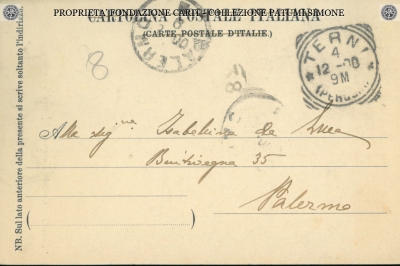 PROPRIETÀ FONDAZIONE CARIT-COLLEZIONE PATUMI SIMONE
CARTOLINA POSTALE ITALIANA
(CARTE POSTALE D'ITALIE.)
PALERMO
TERNI
4
12-00
9M
(PERUGIA)
8
Alla sigina Isabellina de Luca
Bentivegna 35
Palermo
NB. Sul lato anteriore della presente si scrive soltanto l'indirizzo.